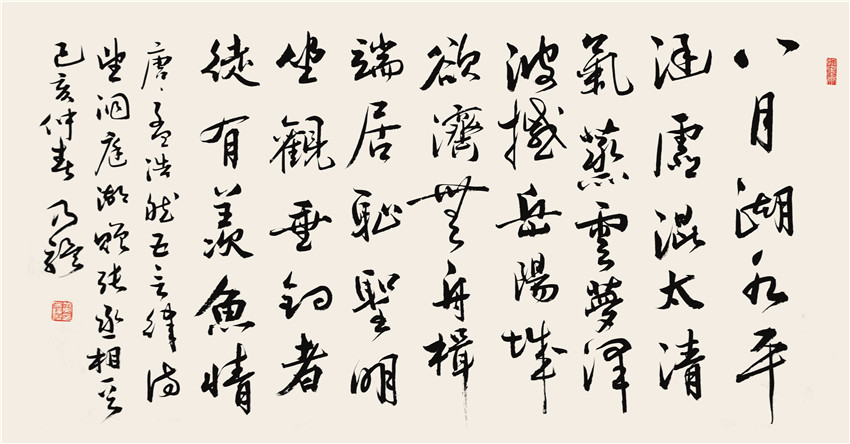 八月湖水平
涵虛混太清
氣蒸雲夢澤
波撼岳陽城
欲濟無舟楫
端居恥聖明
坐觀垂釣者
徒有羨魚情
唐孟浩然五言律詩
望洞庭湖贈張丞相
己亥仲春乃